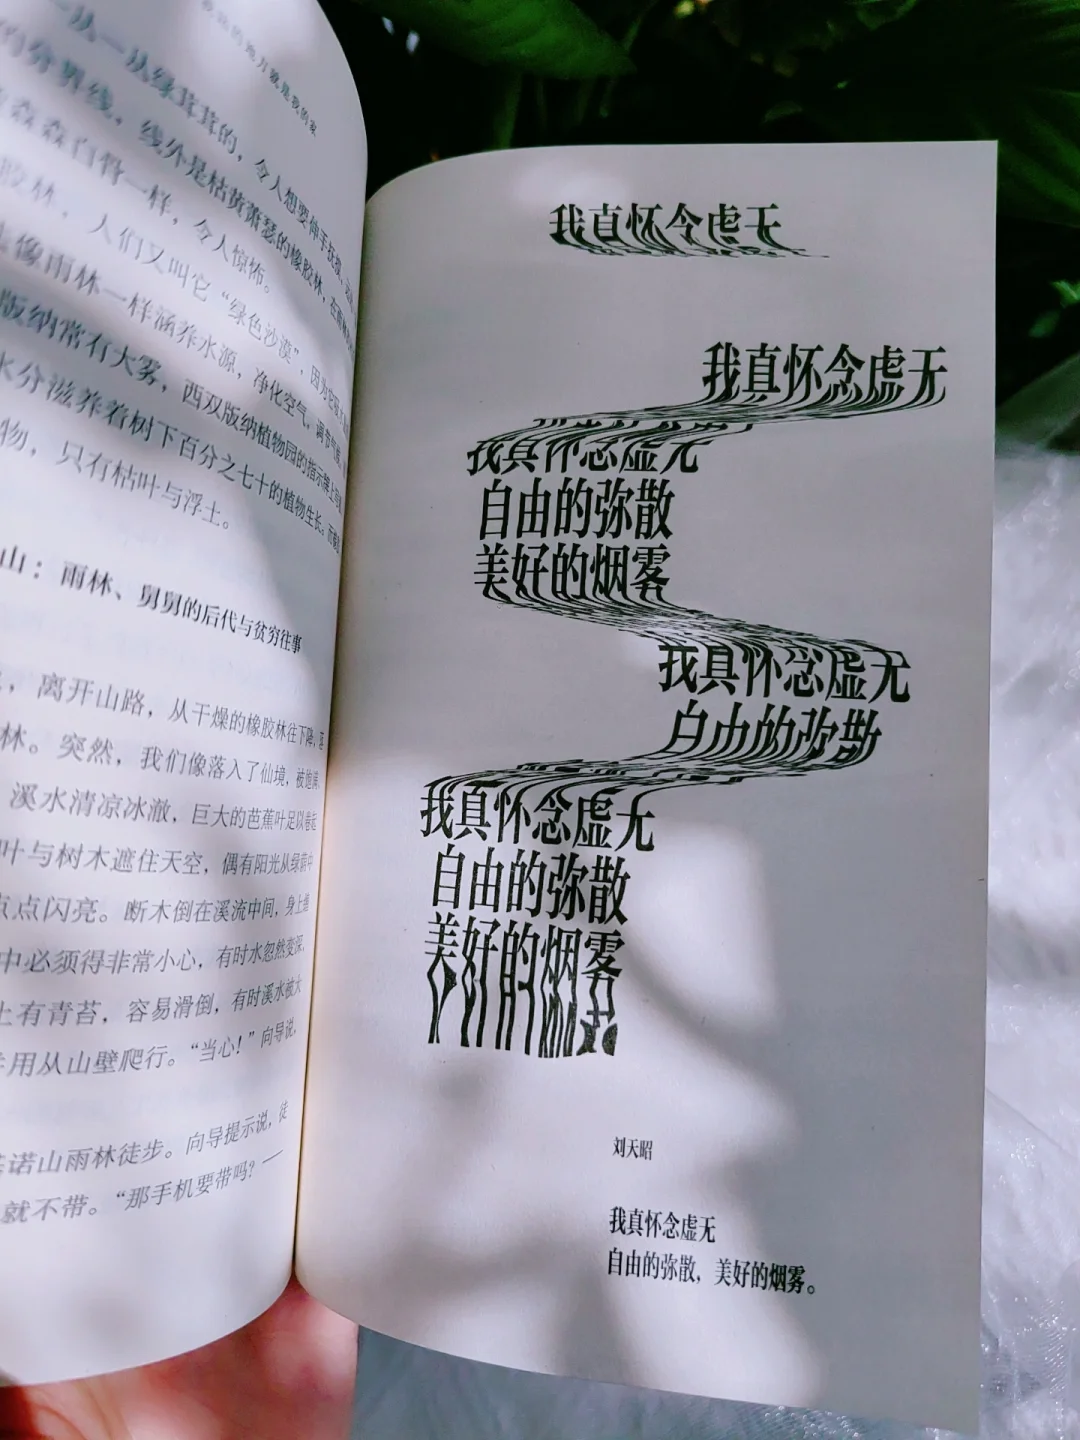 一丛一丛绿茸茸的，令人想要伸手抚摸，
的分界线，线外是枯黄萧瑟的橡胶林，在
森森白骨一样，令人惊怖。
胶林，人们又叫它“绿色沙漠”，因为它
像雨林一样涵养水源，净化空气，调节气
版纳常有大雾，西双版纳植物园的指示牌上写
水分滋养着树下百分之七十的植物生长。而
物，只有枯叶与浮土。
山：雨林、舅舅的后代与贫穷往事
，离开山路，从干燥的橡胶林往下降，
林。突然，我们像落入了仙境，被
溪水清凉冰澈，巨大的芭蕉叶足以卷起
叶与树木遮住天空，偶有阳光从绿荫中
点点闪亮。断木倒在溪流中间，身上
中必须得非常小心，有时水忽然变深，
上有青苔，容易滑倒，有时溪水被大
并用从山壁爬行。“当心！”向导说，
诺山雨林徒步。向导提示说，徒
就不带。“那手机要带吗？—
我真怀念虚无
我真怀念虚无
我真怀念虚无
自由的弥散
美好的烟雾
我真怀念虚无
自由的弥散
我真怀念虚无
自由的弥散
美好的烟雾
刘天昭
我真怀念虚无
自由的弥散，美好的烟雾。